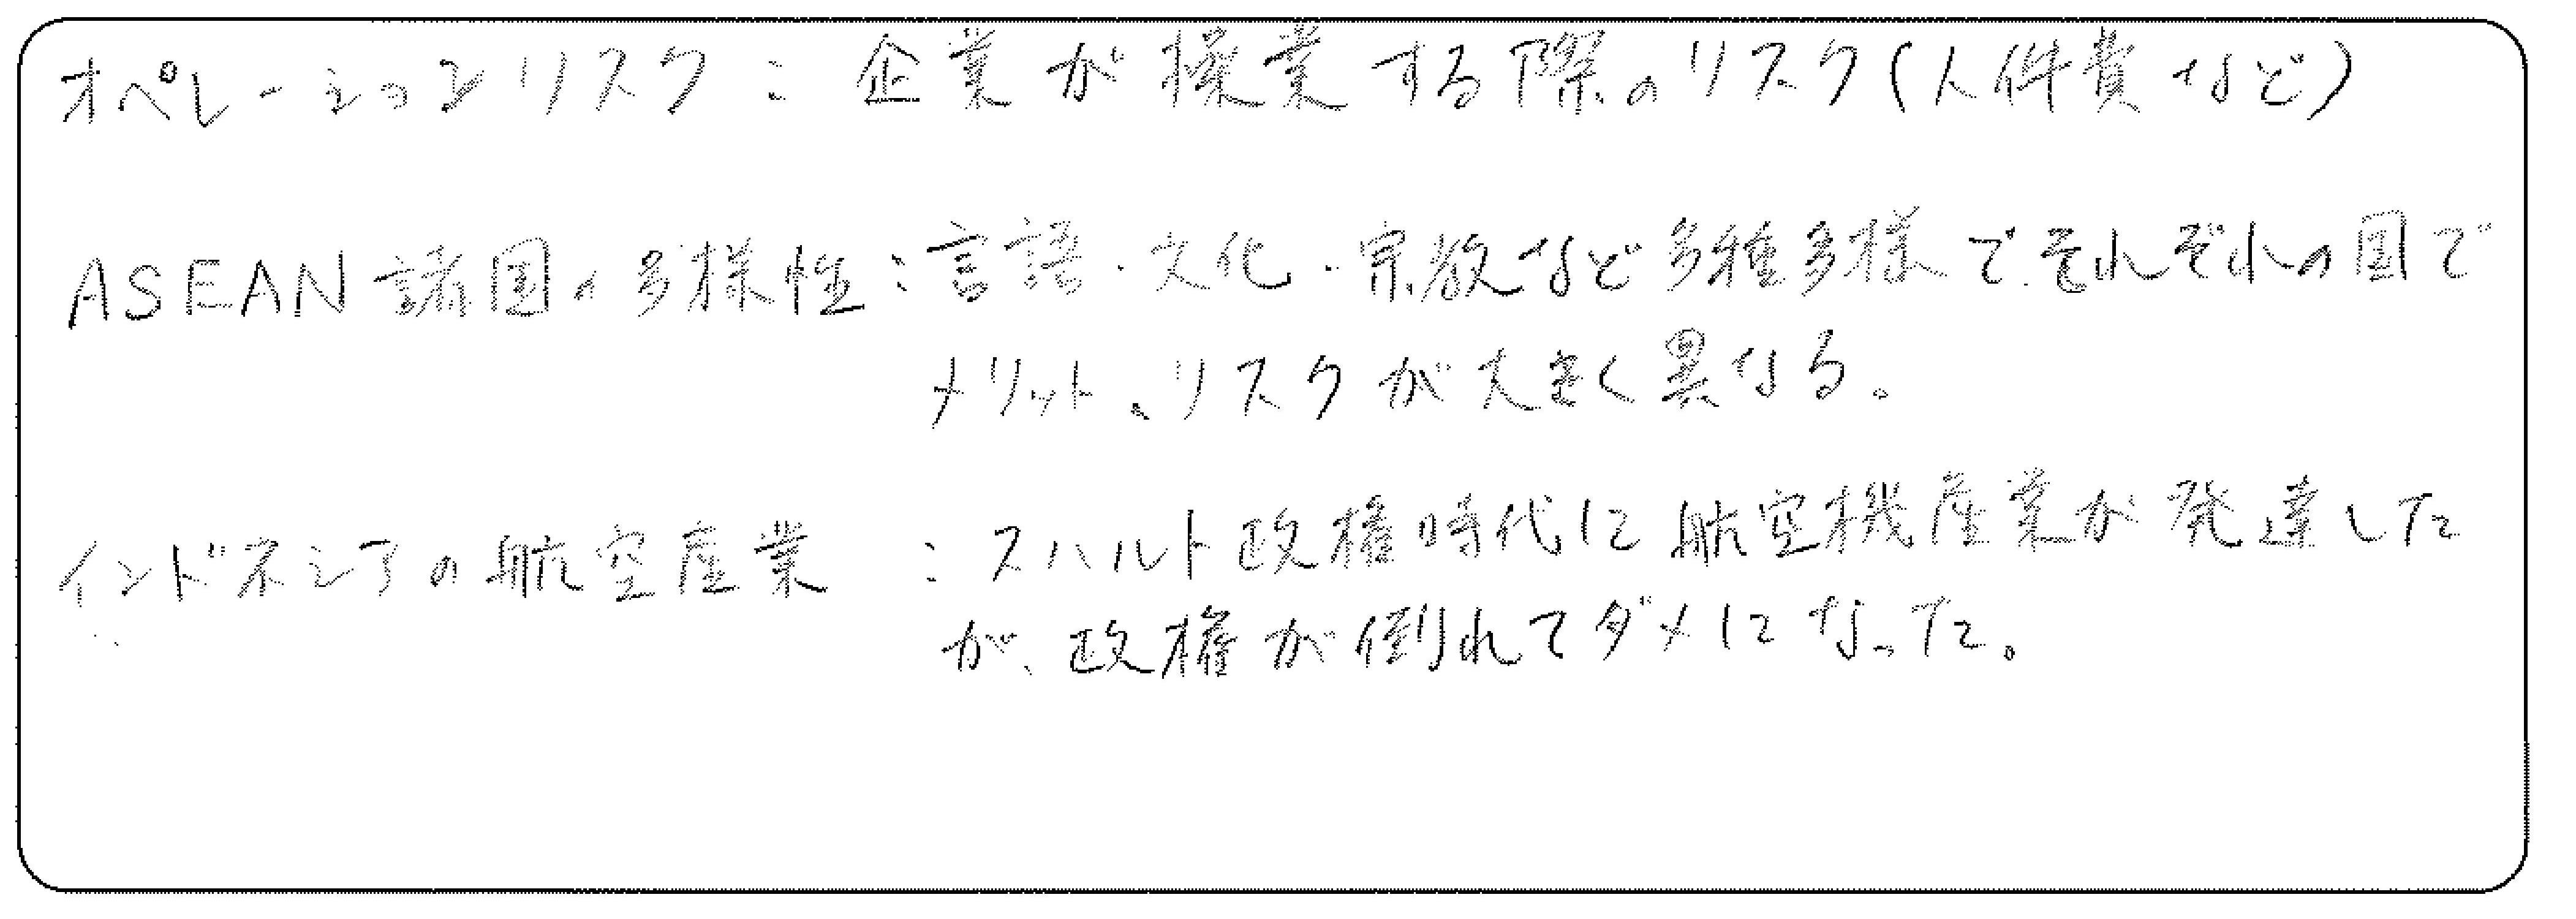 オペレーションリスク：企業が操業する際のリスク（人件費など）
ASEAN諸国の多様性：言語・文化・宗教など多種多様でそれぞれの国で
メリット、リスクが大きく異なる。
インドネシアの航空産業：スハルト政権時代に航空機産業が発達した
が、政権が倒れてダメになった。